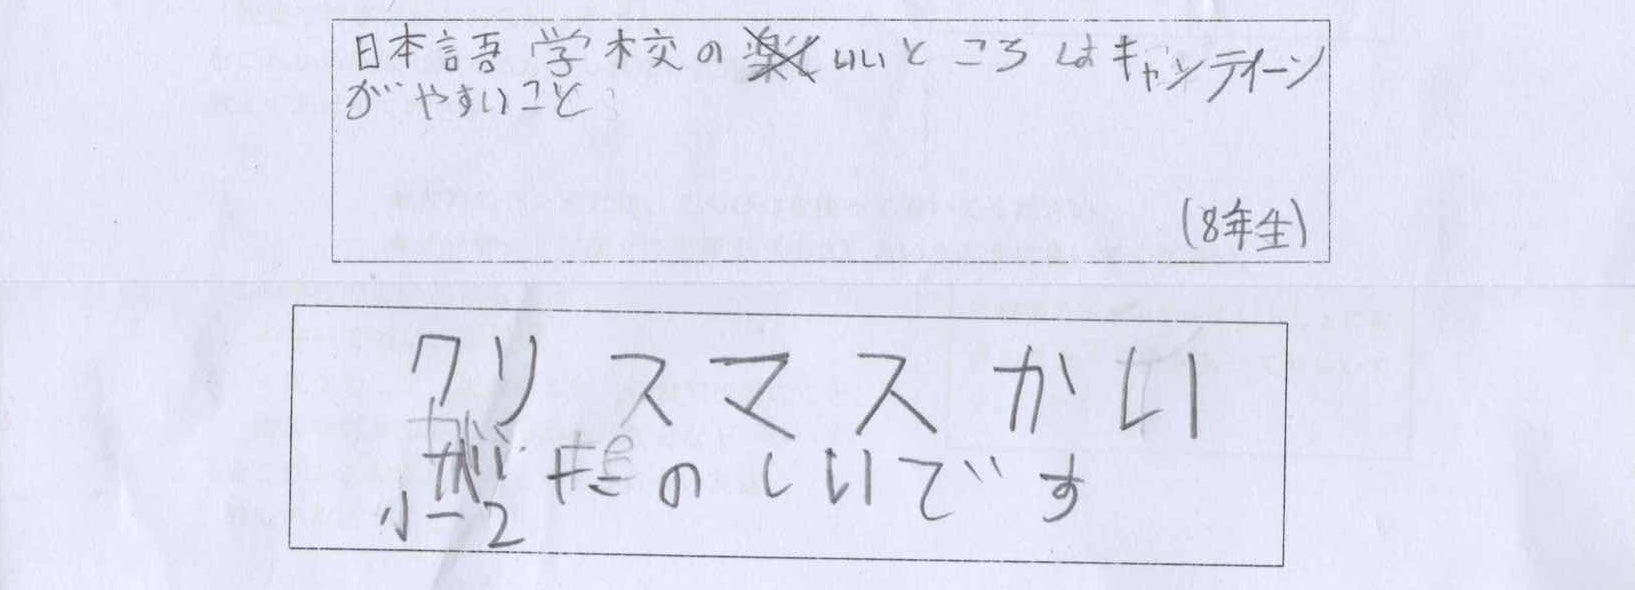 日本語学校のいいところはキャンティーン
がやすいこと
(8年生)
クリスマスかい
がたのしいです
小-2